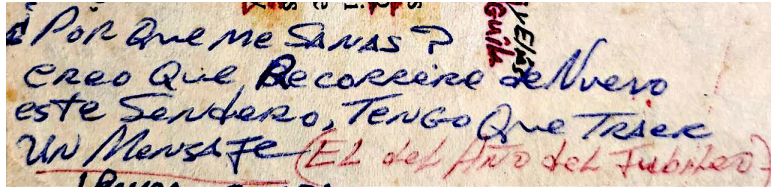 ¿Por Que me Sanas?
Creo Que Recorrere de Nuevo
este Sendero, Tengo Que Traer
Un Mensaje (El del Año del Jubileo)